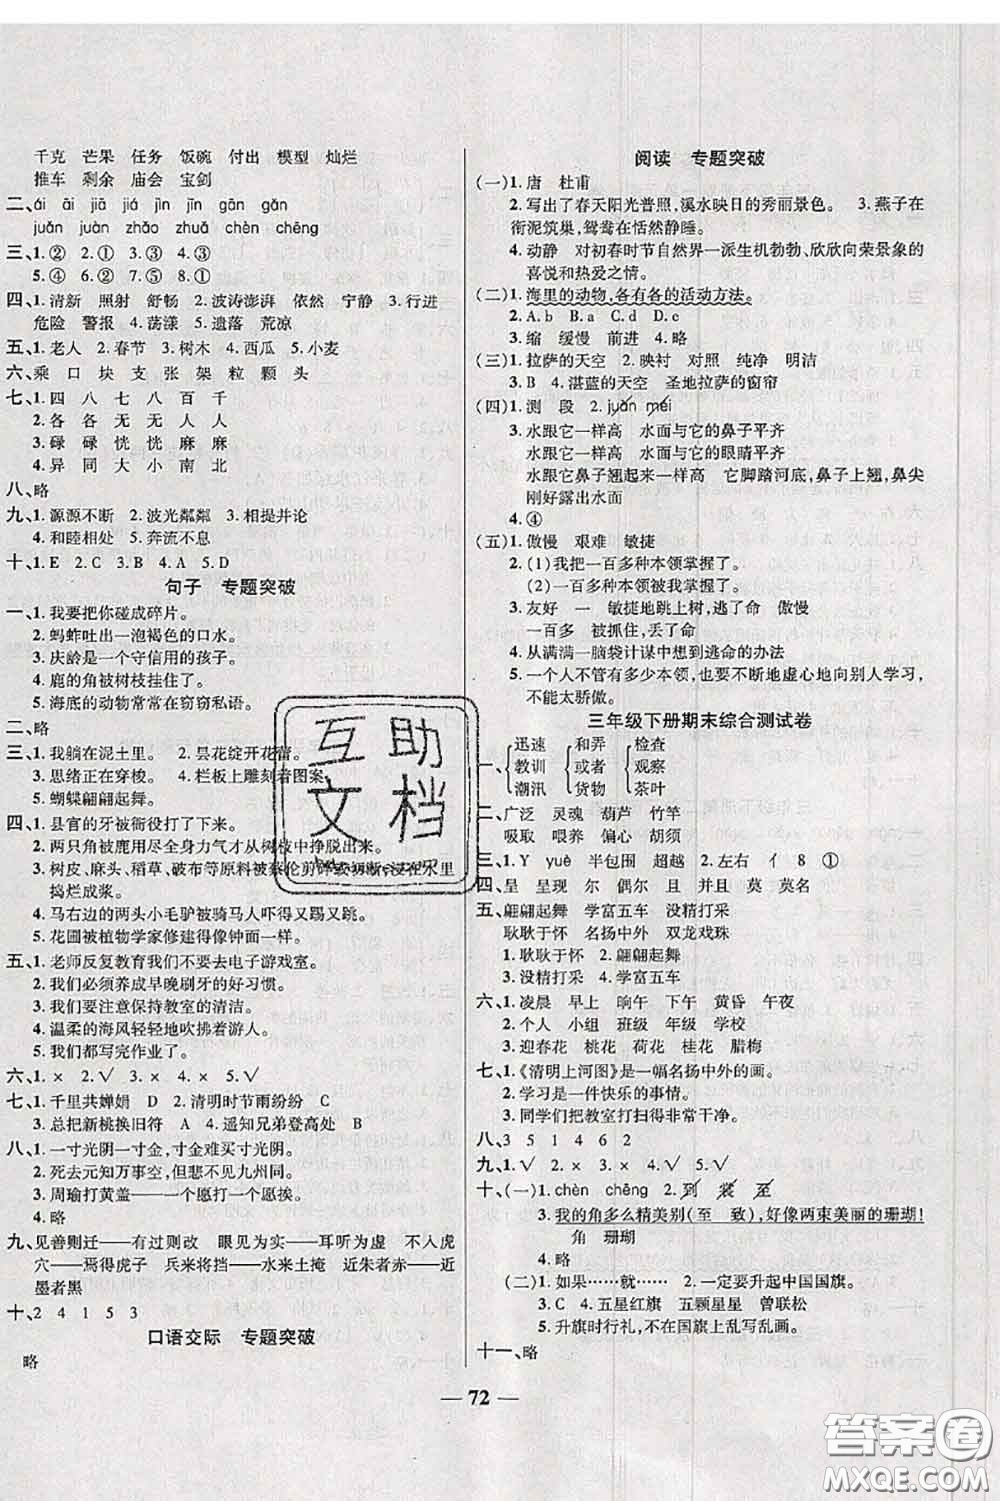 千克 芒果 任务 饭碗 付出 模型 灿烂
推车 剩余 庙会 宝剑
二、ái āi jiā jiá jìn jīn gān gǎn
juǎn juàn zhǎo zhuǎ chèn chēng
三、1.② 2.① 3.① 4.②
5.④ 6.② 7.⑤ 8.①
四、1.清新 照射 舒畅 2.波涛澎湃 依然 宁静 3.行进
危险 警报 4.荡漾 5.遗落 荒凉
五、1.老人 2.春节 3.树木 4.西瓜 5.小麦
六、乘 口 块 支 张 架 粒 颗 头
七、1.四 八 七 八 百 千
2.各 各 无 无 人 人
3.碌 碌 恍 恍 麻 麻
4.异 同 大 小 南 北
八、略
九、1.源源不断 2.波光粼粼 3.相提并论
4.和睦相处 5.奔流不息
十、1.E 2.C 3.B 4.A 5.D
句子 专题突破
一、1.我要把你碰成碎片。
2.蚂蚱吐出一泡褐色的口水。
3.庆龄是一个守信用的孩子。
4.鹿的角被树枝挂住了。
5.海底的动物常常在窃窃私语。
二、略
三、1.我躺在泥土里。 2.昙花绽开花蕾。
3.思绪正在穿梭。 4.栏板上雕刻着图案。
5.蝴蝶翩翩起舞。
四、1.县官的牙被衙役打了下来。
2.两只角被鹿用尽全身力气才从树枝中挣脱出来。
3.树皮、麻头、稻草、破布等原料被蔡伦剪碎或切断,浸在水里
捣烂成浆。
4.马右边的两头小毛驴被骑马人吓得又踢又跳。
5.花圃被植物学家修建得像钟面一样。
五、1.老师反复教育我们不要去电子游戏室。
2.我们必须养成早晚刷牙的好习惯。
3.我们要注意保持教室的清洁。
4.温柔的海风轻轻地吹拂着游人。
5.我们都写完作业了。
六、1.× 2.√ 3.× 4.× 5.√
七、1.千里共婵娟 D 2.清明时节雨纷纷 C
3.总把新桃换旧符 A 4.遥知兄弟登高处 B
八、1.一寸光阴一寸金,寸金难买寸光阴。
2.死去元知万事空,但悲不见九州同。
3.周瑜打黄盖——一个愿打一个愿挨。
4.略
九、见善则迁——有过则改 眼见为实——耳听为虚 不入虎
穴——焉得虎子 兵来将挡——水来土掩 近朱者赤——近
墨者黑
十、2 4 1 5 3
口语交际 专题突破
略
阅读 专题突破
(一)1.唐 杜甫
2.写出了春天阳光普照,溪水映日的秀丽景色。 3.燕子在
衔泥筑巢,鸳鸯在恬然静睡。
4.动静 对初春时节自然界一派生机勃勃、欣欣向荣景象的
喜悦和热爱之情。
(二)1.海里的动物,各有各的活动方法。
2.A.b B.a C.d D.c
3.缩 缓慢 前进 4.略
(三)1.拉萨的天空 2.映衬 对照 纯净 明洁
3.B 4.湛蓝的天空 圣地拉萨的窗帘
(四)1.测 段 2.juǎn měi
3.水跟它一样高 水面与它的鼻子平齐
水跟它一样高 水面与它的眼睛平齐
水跟它鼻子翘起来一样高 它脚踏河底,鼻子上翘,鼻尖
刚好露出水面
4.④
(五)1.傲慢 艰难 敏捷
2.(1)我把一百多种本领掌握了。
(2)一百多种本领被我掌握了。
3.友好 一 敏捷地跳上树,逃了命 傲慢
一百多 被抓住,丢了命
4.从满满一脑袋计谋中想到逃命的办法
5.一个人不管有多少本领,也要不断地虚心地向别人学习,
不能太骄傲。
三年级下册期末综合测试卷
一、 迅速 教训 潮汛 和弄 或者 货物 检查 观察 茶叶
二、广泛 灵魂 葫芦 竹竿
吸取 喂养 偏心 胡须
三、1.Y yuè 半包围 超越 2.左右 亻 8 ①
四、呈 呈现 尔 偶尔 且 并且 莫 莫名
五、翩翩起舞 学富五车 没精打采
耿耿于怀 名扬中外 双龙戏珠
1.耿耿于怀 2.翩翩起舞
3.没精打采 4.学富五车
六、1.凌晨 早上 晌午 下午 黄昏 午夜
2.个人 小组 班级 年级 学校
3.迎春花 桃花 荷花 桂花 腊梅
七、1.《清明上河图》是一幅名扬中外的画。
2.学习是一件快乐的事情。
3.同学们把教室打扫得非常干净。
八、3 5 1 4 6 2
九、1.√ 2.× 3.× 4.√ 5.√
十、(一)1.chèn chēng 2.到 装 至
3.我的角多么精美别(至 致),好像两束美丽的珊瑚!
角 珊瑚
4.略
(二)1.如果……就…… 2.一定要升起中国国旗。
3.C 4.五星红旗 五颗星星 曾联松
5.升旗时行礼,不在国旗上乱写乱画。
十一、略
72
互助
文档
答案圈
MXQE.COM